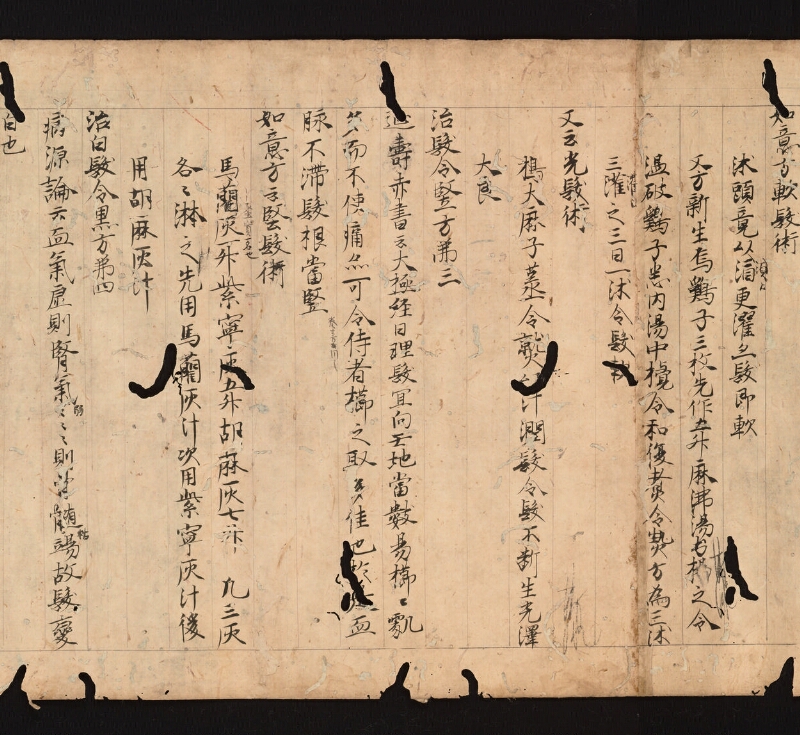 如意方軟髮術
沐頭竟以酒更濯之髮即軟
又方新生烏鷄子三枚先作五升麻沸湯出揚之令
温破鷄子悉内湯中攪令和復煮令熱方為三沐
三濯之三日一沐令髮軟
又云光髮術
搗大麻子蒸令熟 汁潤髮令髮不断生光澤
大良
治髮令堅方第三
延壽赤書云大極経曰理髮宜向王地當數易櫛櫛
然而不使痛亦可令侍者櫛之取多佳也於 血
脉不滞髮根當堅
如意方云堅髮術
馬藺灰一升紫寧灰五升胡麻灰七升 凡三灰
各各淋之先用馬藺灰汁次用紫寧灰汁後
用胡麻灰汁
治白髮令黒方第四
病源論云血氣虚則腎氣弱腎氣弱則骨髄竭故髮變
白也